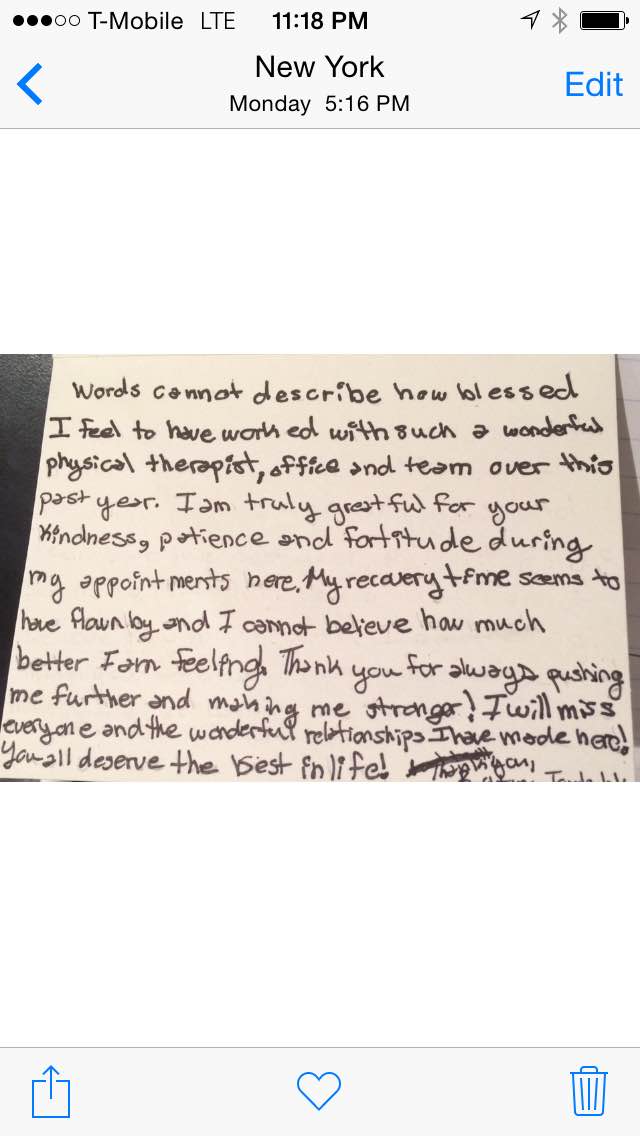 T-Mobile LTE 11:18 PM
New York
Monday 5:16 PM
Edit
Words cannot describe how blessed
I feel to have worked with such a wonderful
physical therapist, office and team over this
past year. I am truly greatful for your
kindness, patience and fortitude during
my appointments here. My recovery time seems to
have flown by and I cannot believe how much
better I am feeling. Thank you for always pushing
me further and making me stronger! I will miss
everyone and the wonderful relationships I have made here!
You all deserve the best in life! Thank you,